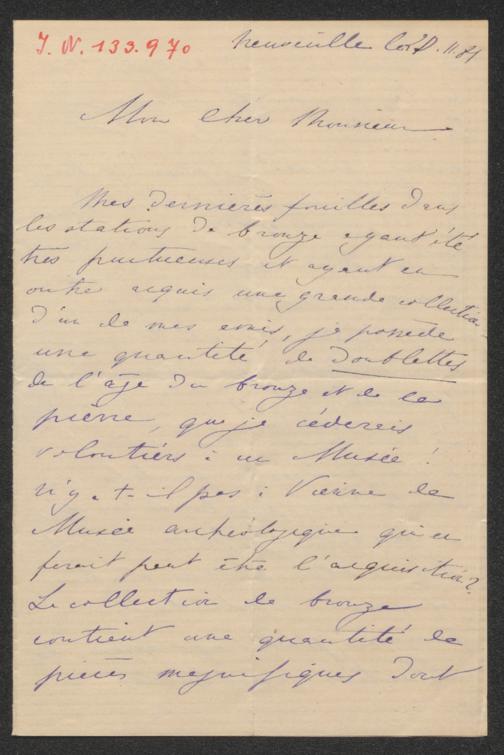 J. N. 133.970
Neuveville
Mon Cher Monsieur
Mes dernières fouilles dans
les stations de bronze ayant été
très fructueuses et ayant en
outre acquis une grande collection
d'un de mes amis, je possède
une quantité de doublettes
de l'âge du bronze et de la
pièrre, que je céderais
volontiérs à un Musée!
n'y a-t-il pas à Vienne de
Musée archéologique qui en
ferait peut être l'acquisition?
La collection de bronze
contient une quantité de
pièces magnifiques dont